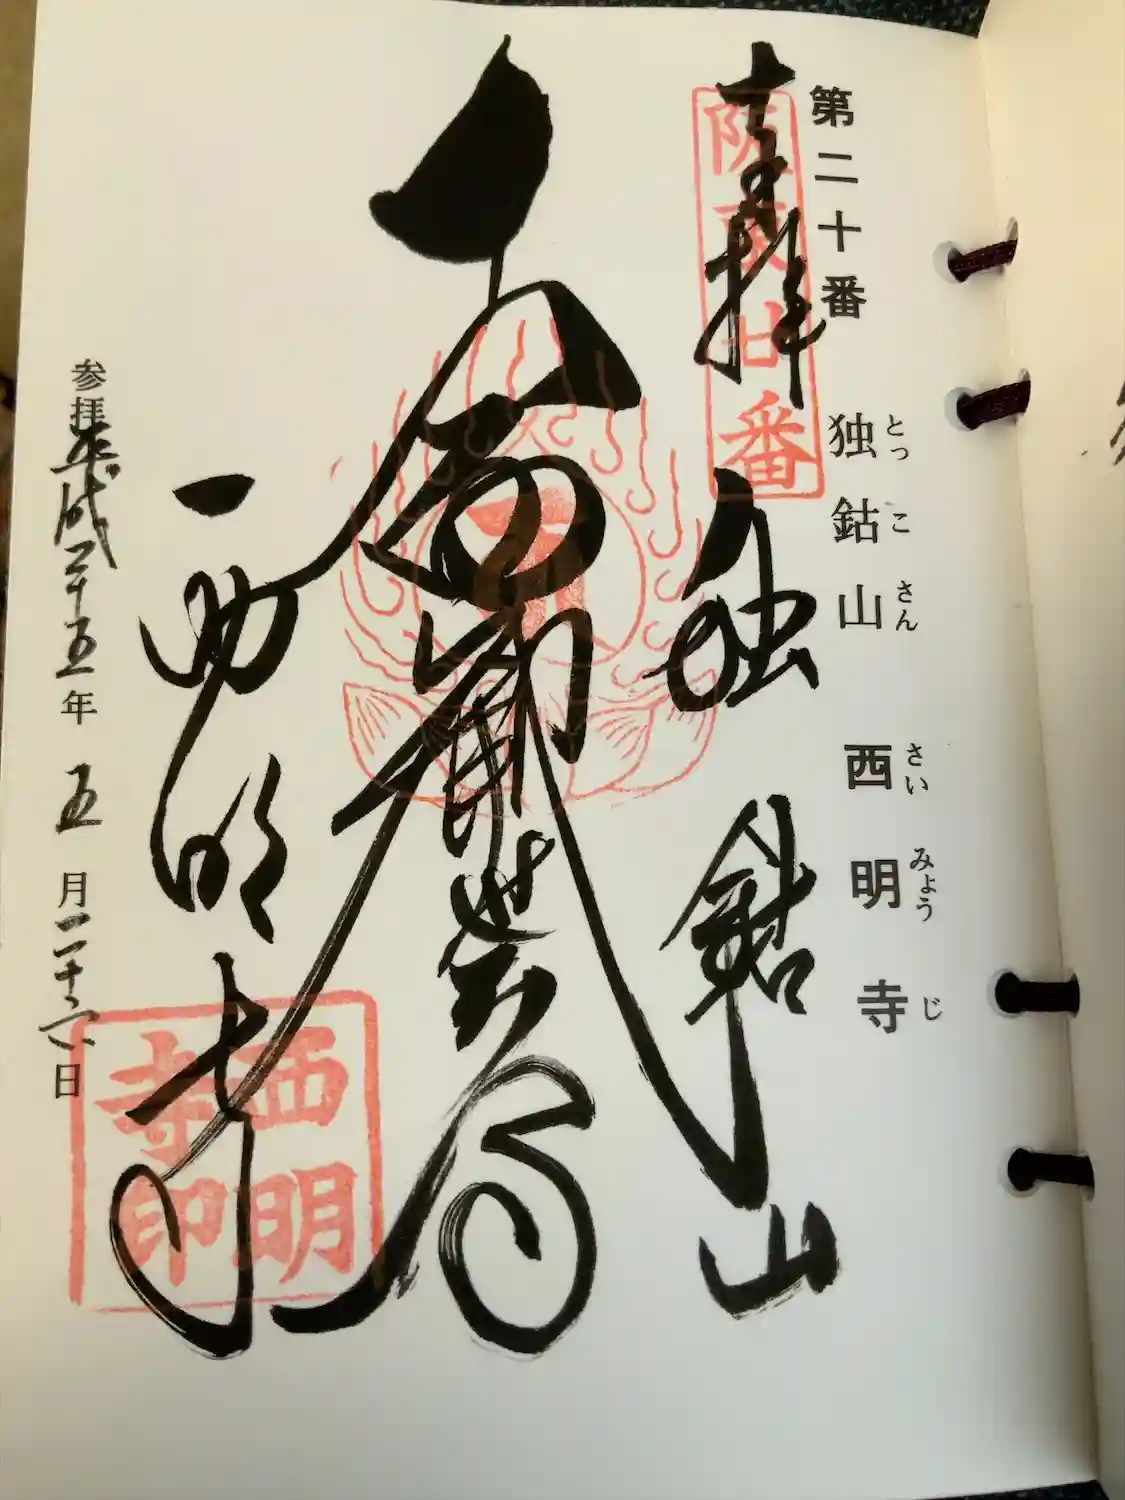 第二十番 独鈷山 西明寺
とっ こ さん さい みょう じ
奉拝
阪東廿番
独鈷山
十一面観世音
西明寺
西明寺印
参拝平成二十五年 五月二十六日